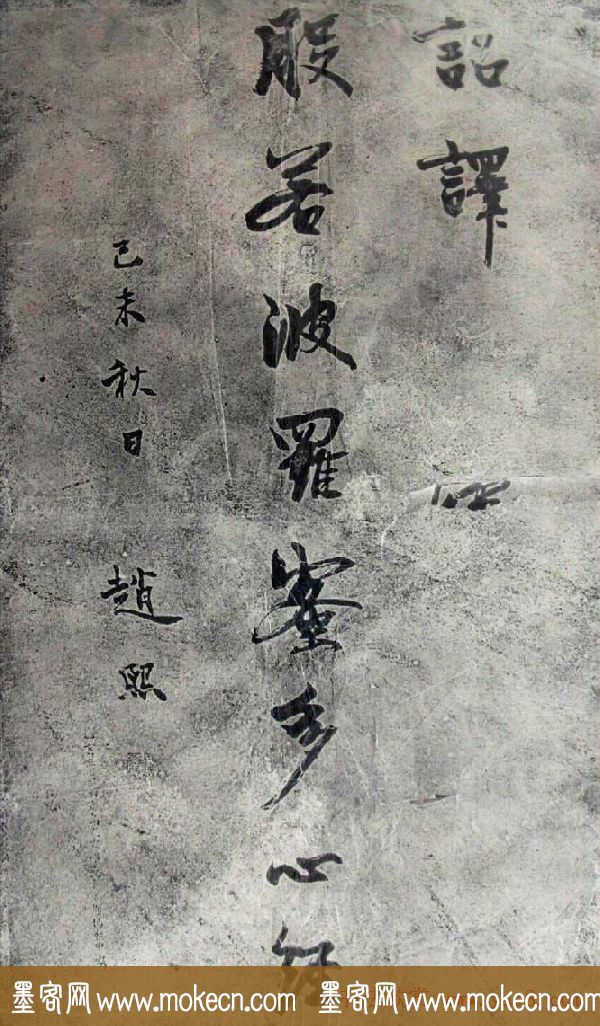 詔譯
般若波羅蜜多心經
己未秋日 趙熙
墨客网 www.mokecn.com 墨客网 www.mokecn.com